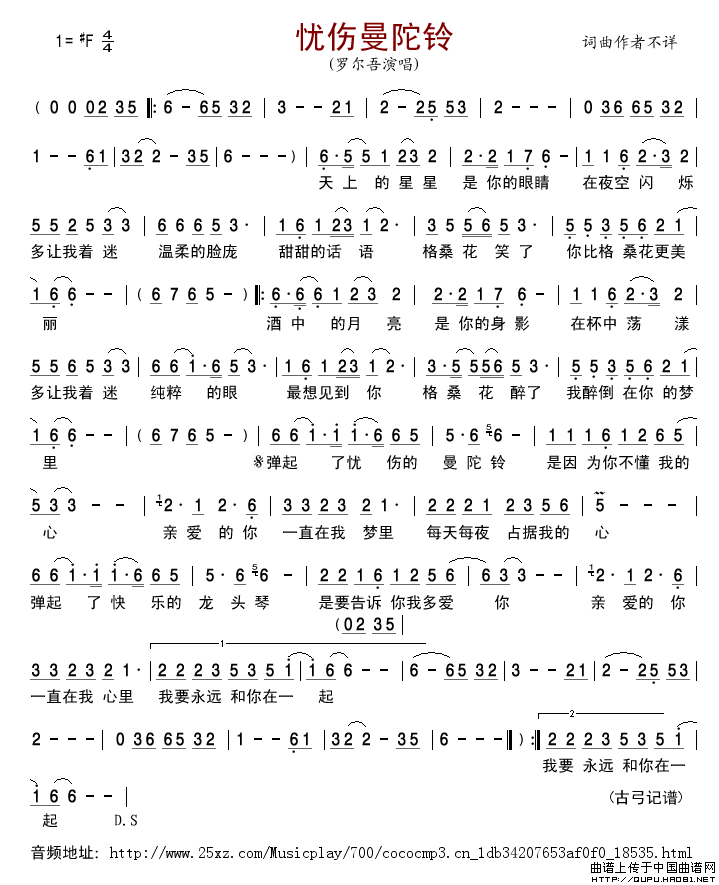 忧伤曼陀铃
1=♯F 4/4 词曲作者不详
(罗尔吾演唱)
( 0 0 02 35 ‖: 6 - 65 32 | 3 - - 21 | 2 - 25 53 | 2 - - - | 0 36 65 32 |
1 - - 61 | 32 2 - 35 | 6 - - - ) | 6·5 51 23 2 | 2·2 17 6 - | 1 1 6 2·3 2 |
天上 的星星 是 你的眼睛 在夜空 闪 烁
55 25 33 | 66 65 3· | 16 123 12· | 35 56 53· | 55 35 65 61 |
多让我着 迷 温柔的脸庞 甜甜的话 语 格桑 花 笑了 你比格 桑花更美
16 6 - - | ( 6 76 5 - ) ‖: 6·6 61 23 2 | 2·2 17 6 - | 1 1 6 2·3 2 |
丽 酒中 的月 亮 是 你的身影 在杯中 荡 漾
55 65 33 | 66 1·6 53· | 16 123 12· | 3·5 556 53· | 55 35 56 21 |
多让我着 迷 纯粹 的眼 最想见到 你 格桑 花 醉了 我醉倒 在你 的梦
16 6 - - | ( 6 76 5 - ) | 66 1·1 1·6 65 | 5·6 6 - | 11 16 12 65 |
里 ※弹起 了忧 伤的 曼陀 铃 是因 为你不懂 我的
53 3 - - | 2·1 2·6 | 33 23 21· | 22 21 23 56 | 5 - - - |
心 亲爱的你 一直在我 梦里 每天每夜 占据我的 心
66 1·1 1·6 65 | 5·6 6 - | 22 16 12 56 | 6 33 - - | 2·1 2·6 |
弹起 了快 乐的 龙头琴 是要告诉 你我多爱 你 亲 爱的 你
(02 35 |
1
33 23 21· | 22 23 53 51 | 16 6 - - | 6 - 65 32 | 3 - - 21 | 2 - 25 53 |
一直在我 心里 我要永远 和你在一 起
2 - - - | 0 36 65 32 | 1 - - 61 | 32 2 - 35 | 6 - - - ‖ ) :‖ 22 23 53 51 |
2
我要 永远 和你在一
16 6 - - | (古弓记谱)
起 D.S
音频地址: http://www.25xz.com/Musicplay/700/cococmp3.cn_1db34207653af0f0_18535.html
曲谱上传于中国曲谱网
http://QUPU.HAO81.NET